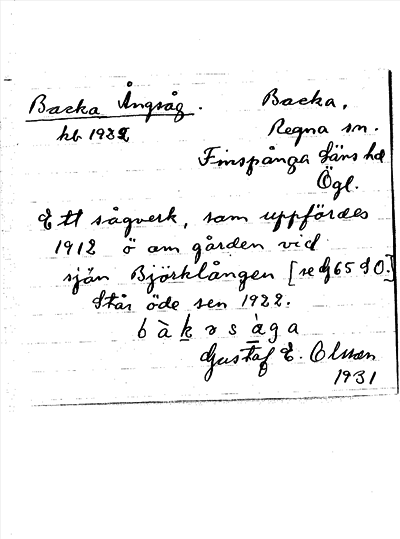 Backa Ångsåg.
Backa,
hb 1932
Regna sn.
Finspånga läns hd
Ögl.
Ett sågverk, som uppfördes
1912 ö om gården vid
sjön Björklången [se 65 SO.]
Står öde sen 1922.
bàkrsàga
Gustaf E. Olsson
1931